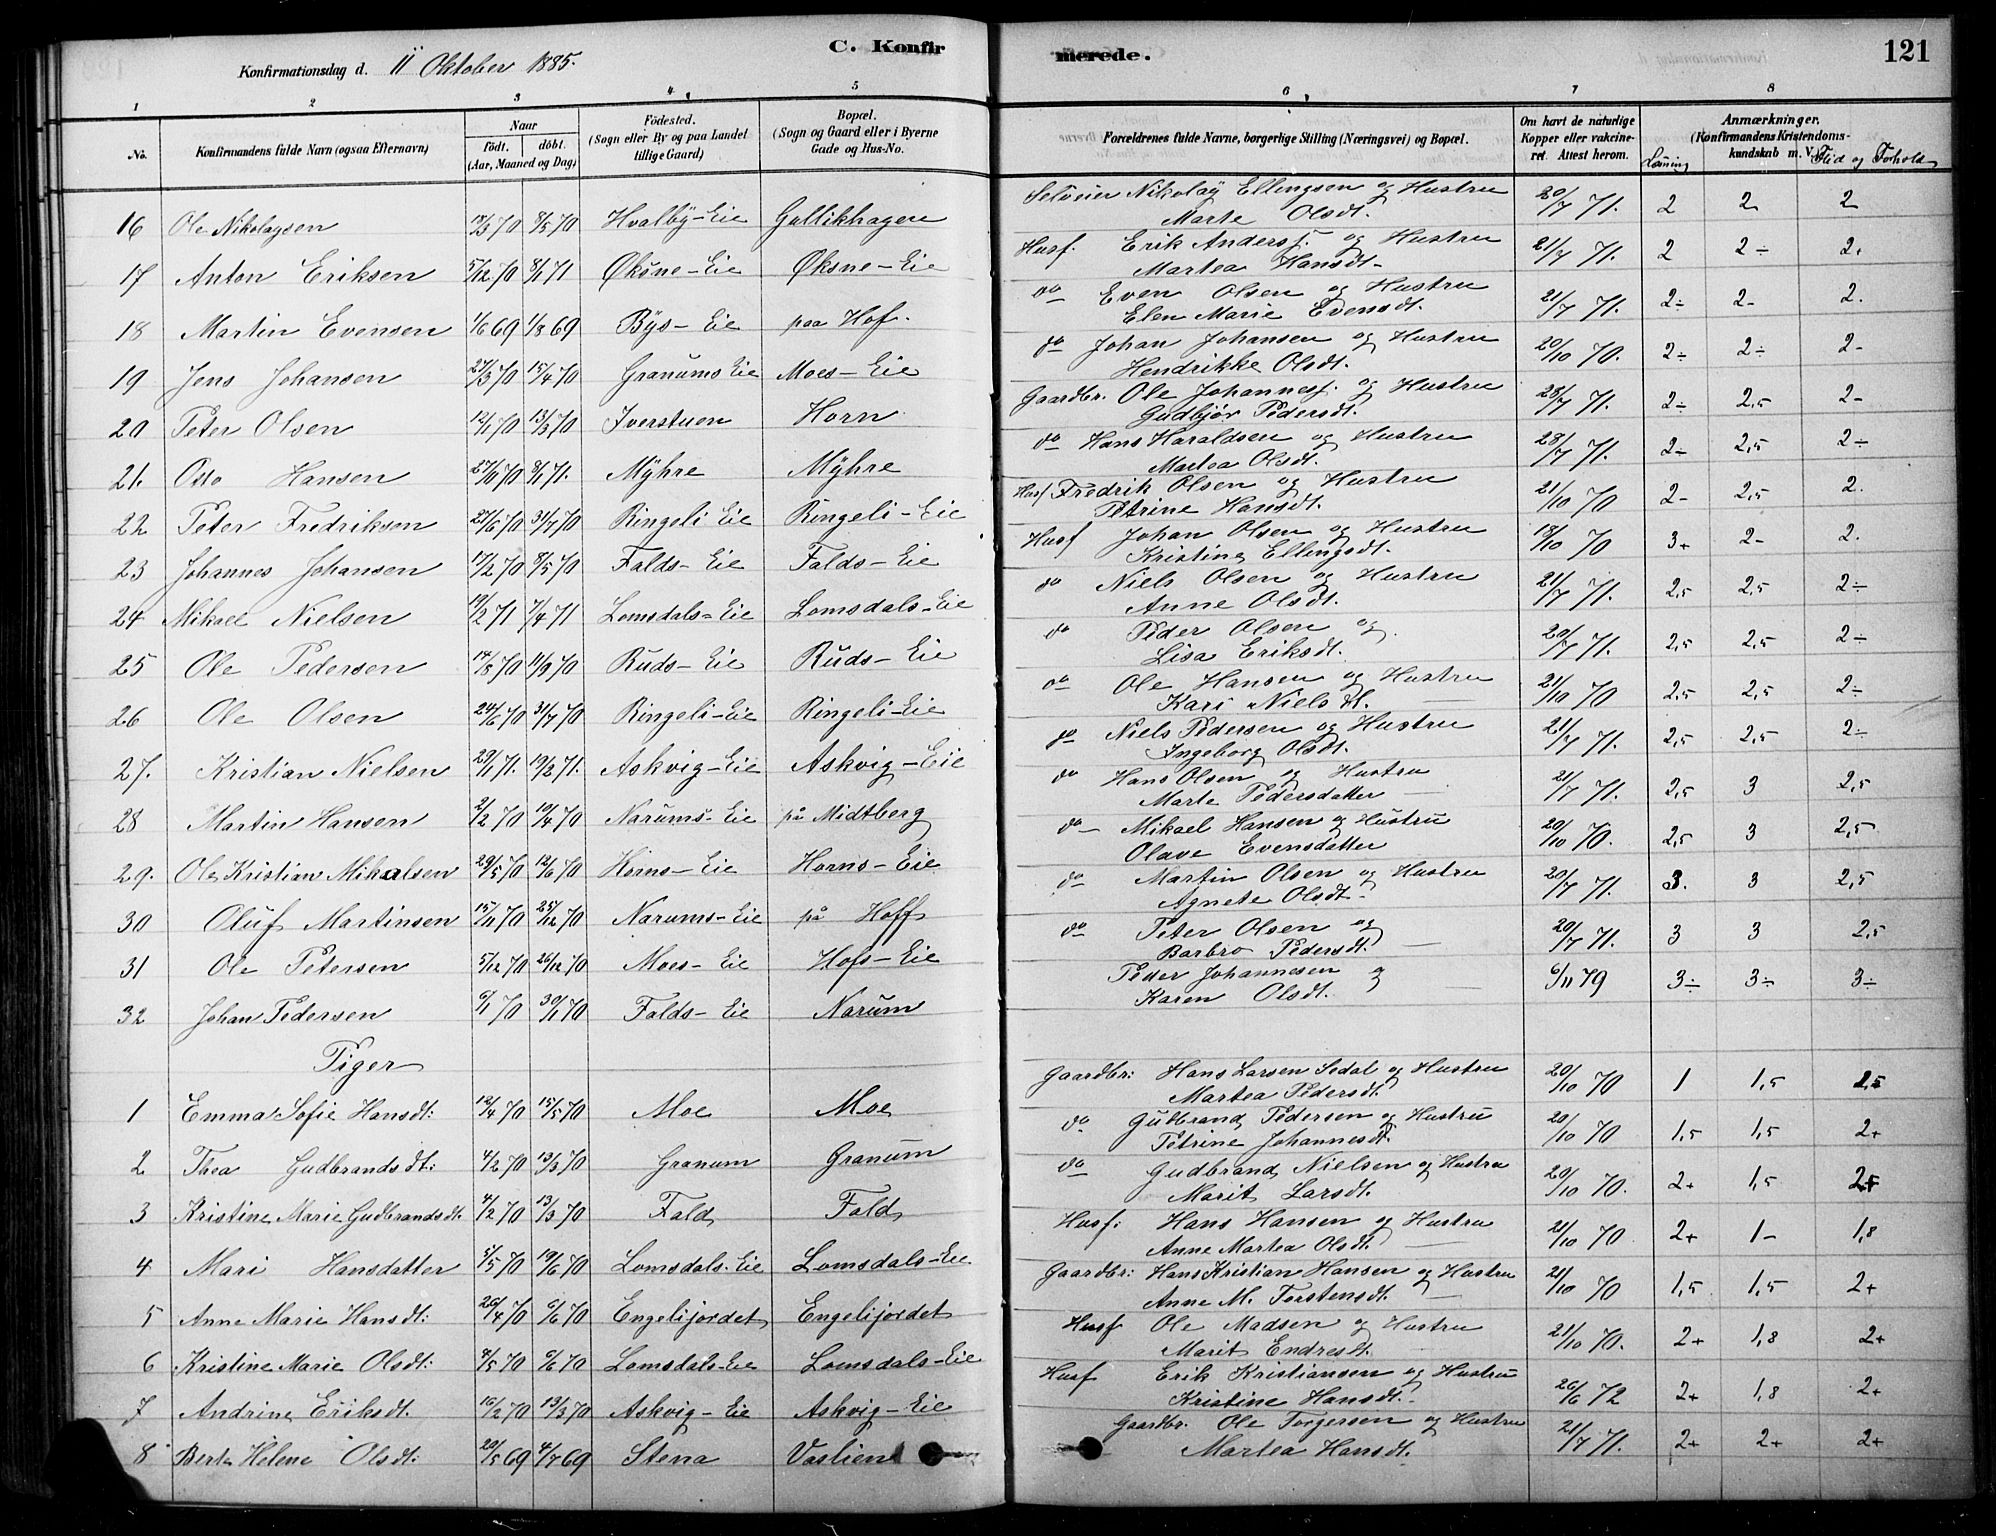 C. Konfirmerede. 121
Konfirmationsdag d. 11 Oktober 1885.
1 2 3 4 5 6 7 8
No. Konfirmandens fulde Navn (ogsaa Efternavn) Naar født. døbt. (Aar, Maaned og Dag) Fødested. (Sogn eller By og paa Landet tillige Gaard) Bopæl. (Sogn og Gaard eller i Byerne Gade og Hus-No. Forældrenes fulde Navne, borgerlige Stilling (Næringsvei) og Bopæl. Om havt de naturlige Kopper eller vakcineret. Attest herom. Anmærkninger. (Konfirmandens Kristendomskundskab m. V. Læsning Flid og Forhold
16 Ole Nikolaysen 13/3 70 8/5 70 Hvalby-Eie Gullikhagen Selveier Nikolay Ellingsen og Hustru Marte Olsdt. 20/7 71. 2 2 2
17 Anton Eriksen 5/12 70 8/1 71 Øksne-Eie Øksne-Eie Husf. Erik Andersf. og Hustru Martea Hansdt. 21/7 71. 2 2÷ 2+
18 Martin Evensen 1/6 69 1/8 69 Bÿs-Eie paa Hof. do Even Olsen og Hustru Elen Marie Evensdt. 21/7 71. 2÷ 2- 2.
19 Jens Johansen 23/3 70 15/4 70 Granums Eie Moes-Eie do Johan Johansen og Hustru Hendrikke Olsdt. 20/10 70. 2÷ 2÷ 2-
20 Peter Olsen 12/1 70 13/3 70 Iverstuen Horn Gaardbr. Ole Johannesf. og Hustru Gudbjør Pedersdt. 28/7 71. 2÷ 2,5 2-
21. Otto Hansen 27/11 70 8/1 71. Mÿhre Mÿhre do Hans Haraldsen og Hustru Martea Olsdt. 28/7 71. 2÷ 2,5 2÷
22 Peter Fredriksen 27/6 70 31/7 70 Ringeli Eie Ringeli-Eie Husf Fredrik Olsen og Hustru Petrine Hansdt. 21/10 70 2- 2,5 2.
23 Johannes Johansen 17/2 70 8/5 70 Falds-Eie Falds-Eie Husf Johan Olsen og Hustru Kristine Ellingsdt. 18/10 70 3+ 2- 2.
24 Mikael Nielsen 19/2 71 7/4 71 Lomsdals-Eie Lomsdals-Eie do Niels Olsen og Hustru Anne Olsdt. 21/7 71. 2,5 2,5 2÷
25 Ole Pedersen 14/8 70 11/9 70 Ruds-Eie Ruds-Eie do Peder Olsen og Lisa Eriksdt. 20/7 71. 2,5 2,5 2÷
26 Ole Olsen 24/6 70 31/7 70 Ringeli-Eie Ringeli-Eie do Ole Hansen og Hustru Kari Nielsdt. 21/10 70 2,5 2,5 2÷
27. Kristian Nielsen 23/1 71. 19/2 71. Askvig-Eie Askvig-Eie do Niels Pedersen og Hustru Ingeborg Olsdt. 21/7 71. 2,5 2,5 2÷
28 Martin Hansen 2/2 70 10/4 70 Narums-Eie på Midtberg do Hans Olsen og Hustru Marte Pedersdatter 21/7 71. 2,5 3 2,5
29. Ole Kristian Mikalsen 29/5 70 12/6 70 Horns-Eie Horns-Eie do Mikael Hansen og Hustru Olave Evensdatter 20/10 70. 2,5 3 2,5
30 Oluf Martinsen 15/11 70 25/12 70 Narums-Eie på Hoff do Martin Olsen og Hustru Agnete Olsdt. 20/7 71. 3. 3 2,5
31 Ole Petersen 5/12 70 26/12 70 Moes-Eie Hofs-Eie do Peter Olsen og Barbro Pedersdt. 20/7 71. 3 3 2,5
32 Johan Pedersen 6/1 70 30/1 70 Falds-Eie Narum Peder Johannesen og Karen Olsdt. 6/11 79 3÷ 3÷ 3÷
Piger
1 Emma Sofie Hansdt: 12/4 70 15/5 70 Moe Moe Gaardbr: Hans Larsen Sedal og Hustru Martea Pedersdt. 20/10 70 1 1,5
2 Thea Gudbrandsdt: 4/2 70 13/3 70 Granum Granum do Gutbrand Pedersen og Hustru Petrine Johannesdt. 20/10 70 1,5 1,5 2+
3 Kristine Marie Gudbrandsdt. 4/2 70 13/3 70 Fald Fald do Gudbrand Nielsen og Hustru Marit Larsdt. 20/10 70. 2+ 1,5
4 Mari Hansdatter 5/5 70 19/6 70 Lomsdals-Eie Lomsdals-Eie Husf: Hans Hansen og Hustru Anne Martea Olsdt. 21/10 70 2+ 1- 1,8
5 Anne Marie Hansdt: 26/4 70 6/6 70 Engelijordet Engelijordet Gaardbr: Hans Kristian Hansen og Hustru Anne M. Torstensdt. 21/10 70 1,5 1,5 2+
6 Kristine Marie Olsdt: 8/5 70 6/6 70 Lomsdals-Eie Lomsdals-Eie Husf Ole Madsen og Hustru Marit Endresdt. 21/10 70. 2+ 1,8 2+
7 Andrine Eriksdt. 16/2 70 13/3 70 Askvig-Eie Askvig-Eie Husf Erik Kristiansen og Hustru Kristine Hansdt. 26/6 72 2+ 1,8 2+
8 Berte Helene Olsdt: 20/5 69 4/7 69 Stena Vaslien Gaardbr. Ole Torgersen og Hustru Martea Hansdt. 21/7 71. 2+ 2+ 2+